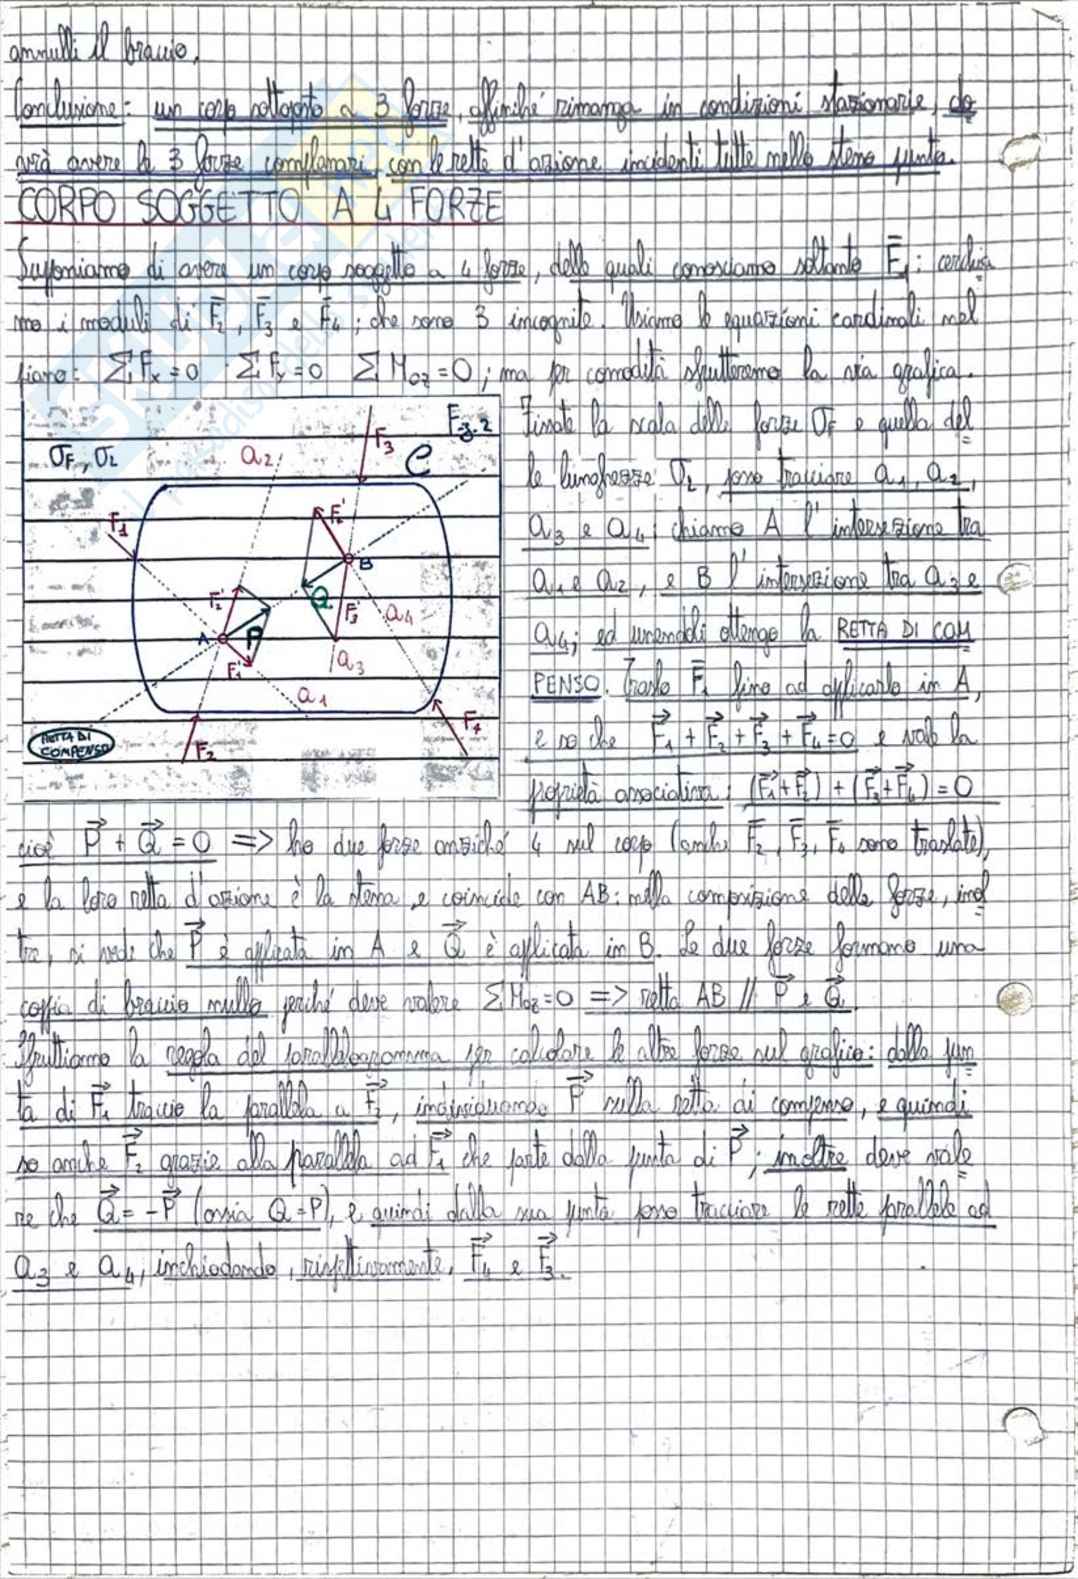 annulli il braccio.
Conclusione: un corpo sottoposto a 3 forze, affinché rimanga in condizioni stazionarie, do
vrà avere le 3 forze complanari con le rette d'azione incidenti tutte nello stesso punto.
CORPO SOGGETTO A 4 FORZE
Supponiamo di avere un corpo soggetto a 4 forze, delle quali conosciamo soltanto F̅₁: cerchia
mo i moduli di F̅₂, F̅₃ e F̅₄; che sono 3 incognite. Usiamo le equazioni cardinali nel
piano: ΣFx=0 ΣFy=0 ΣMoz=0; ma per comodità sfrutteremo la via grafica.
σF, σL
a₂
F₃
F-3-2
C
F₁
F₂'
B
Q
F₃'
a₄
F₂'
A
P
F₁'
a₃
a₁
RETTA DI
COMPENSO
F₂
F₄
Fissate la scala delle forze σF e quella del
le lunghezze σL, posso tracciare a₁, a₂,
a₃ e a₄; chiamo A l'intersezione tra
a₁ e a₂, e B l'intersezione tra a₃ e
a₄; ed unendoli ottengo la RETTA DI COM
PENSO. Traslo F̅₁ fino ad applicarlo in A,
e so che F⃗₁+F⃗₂+F⃗₃+F⃗₄=0 e vale la
proprietà associativa: (F⃗₁+F⃗₂)+(F⃗₃+F⃗₄)=0
cioè P⃗+Q⃗=0 => ho due forze anziché 4 sul corpo (anche F̅₂, F̅₃, F̅₄ sono traslate),
e la loro retta d'azione è la stessa, e coincide con AB: nella composizione delle forze, inol
tre, si vede che P⃗ è applicata in A e Q⃗ è applicata in B. Le due forze formano una
coppia di braccio nullo perché deve valere ΣMoz=0 => retta AB // P⃗ e Q⃗.
Sfruttiamo la regola del parallelogramma per calcolare le altre forze sul grafico: dalla pun
ta di F⃗₁ traccio la parallela a F⃗₂, individuando P⃗ sulla retta di compenso, e quindi
so anche F⃗₂ grazie alla parallela ad F⃗₁ che parte dalla punta di P⃗; inoltre deve vale
re che Q⃗=-P⃗ (ossia Q=P), e quindi dalla sua punta posso tracciare le rette parallele ad
a₃ e a₄, inchiodando, rispettivamente, F⃗₄ e F⃗₃.